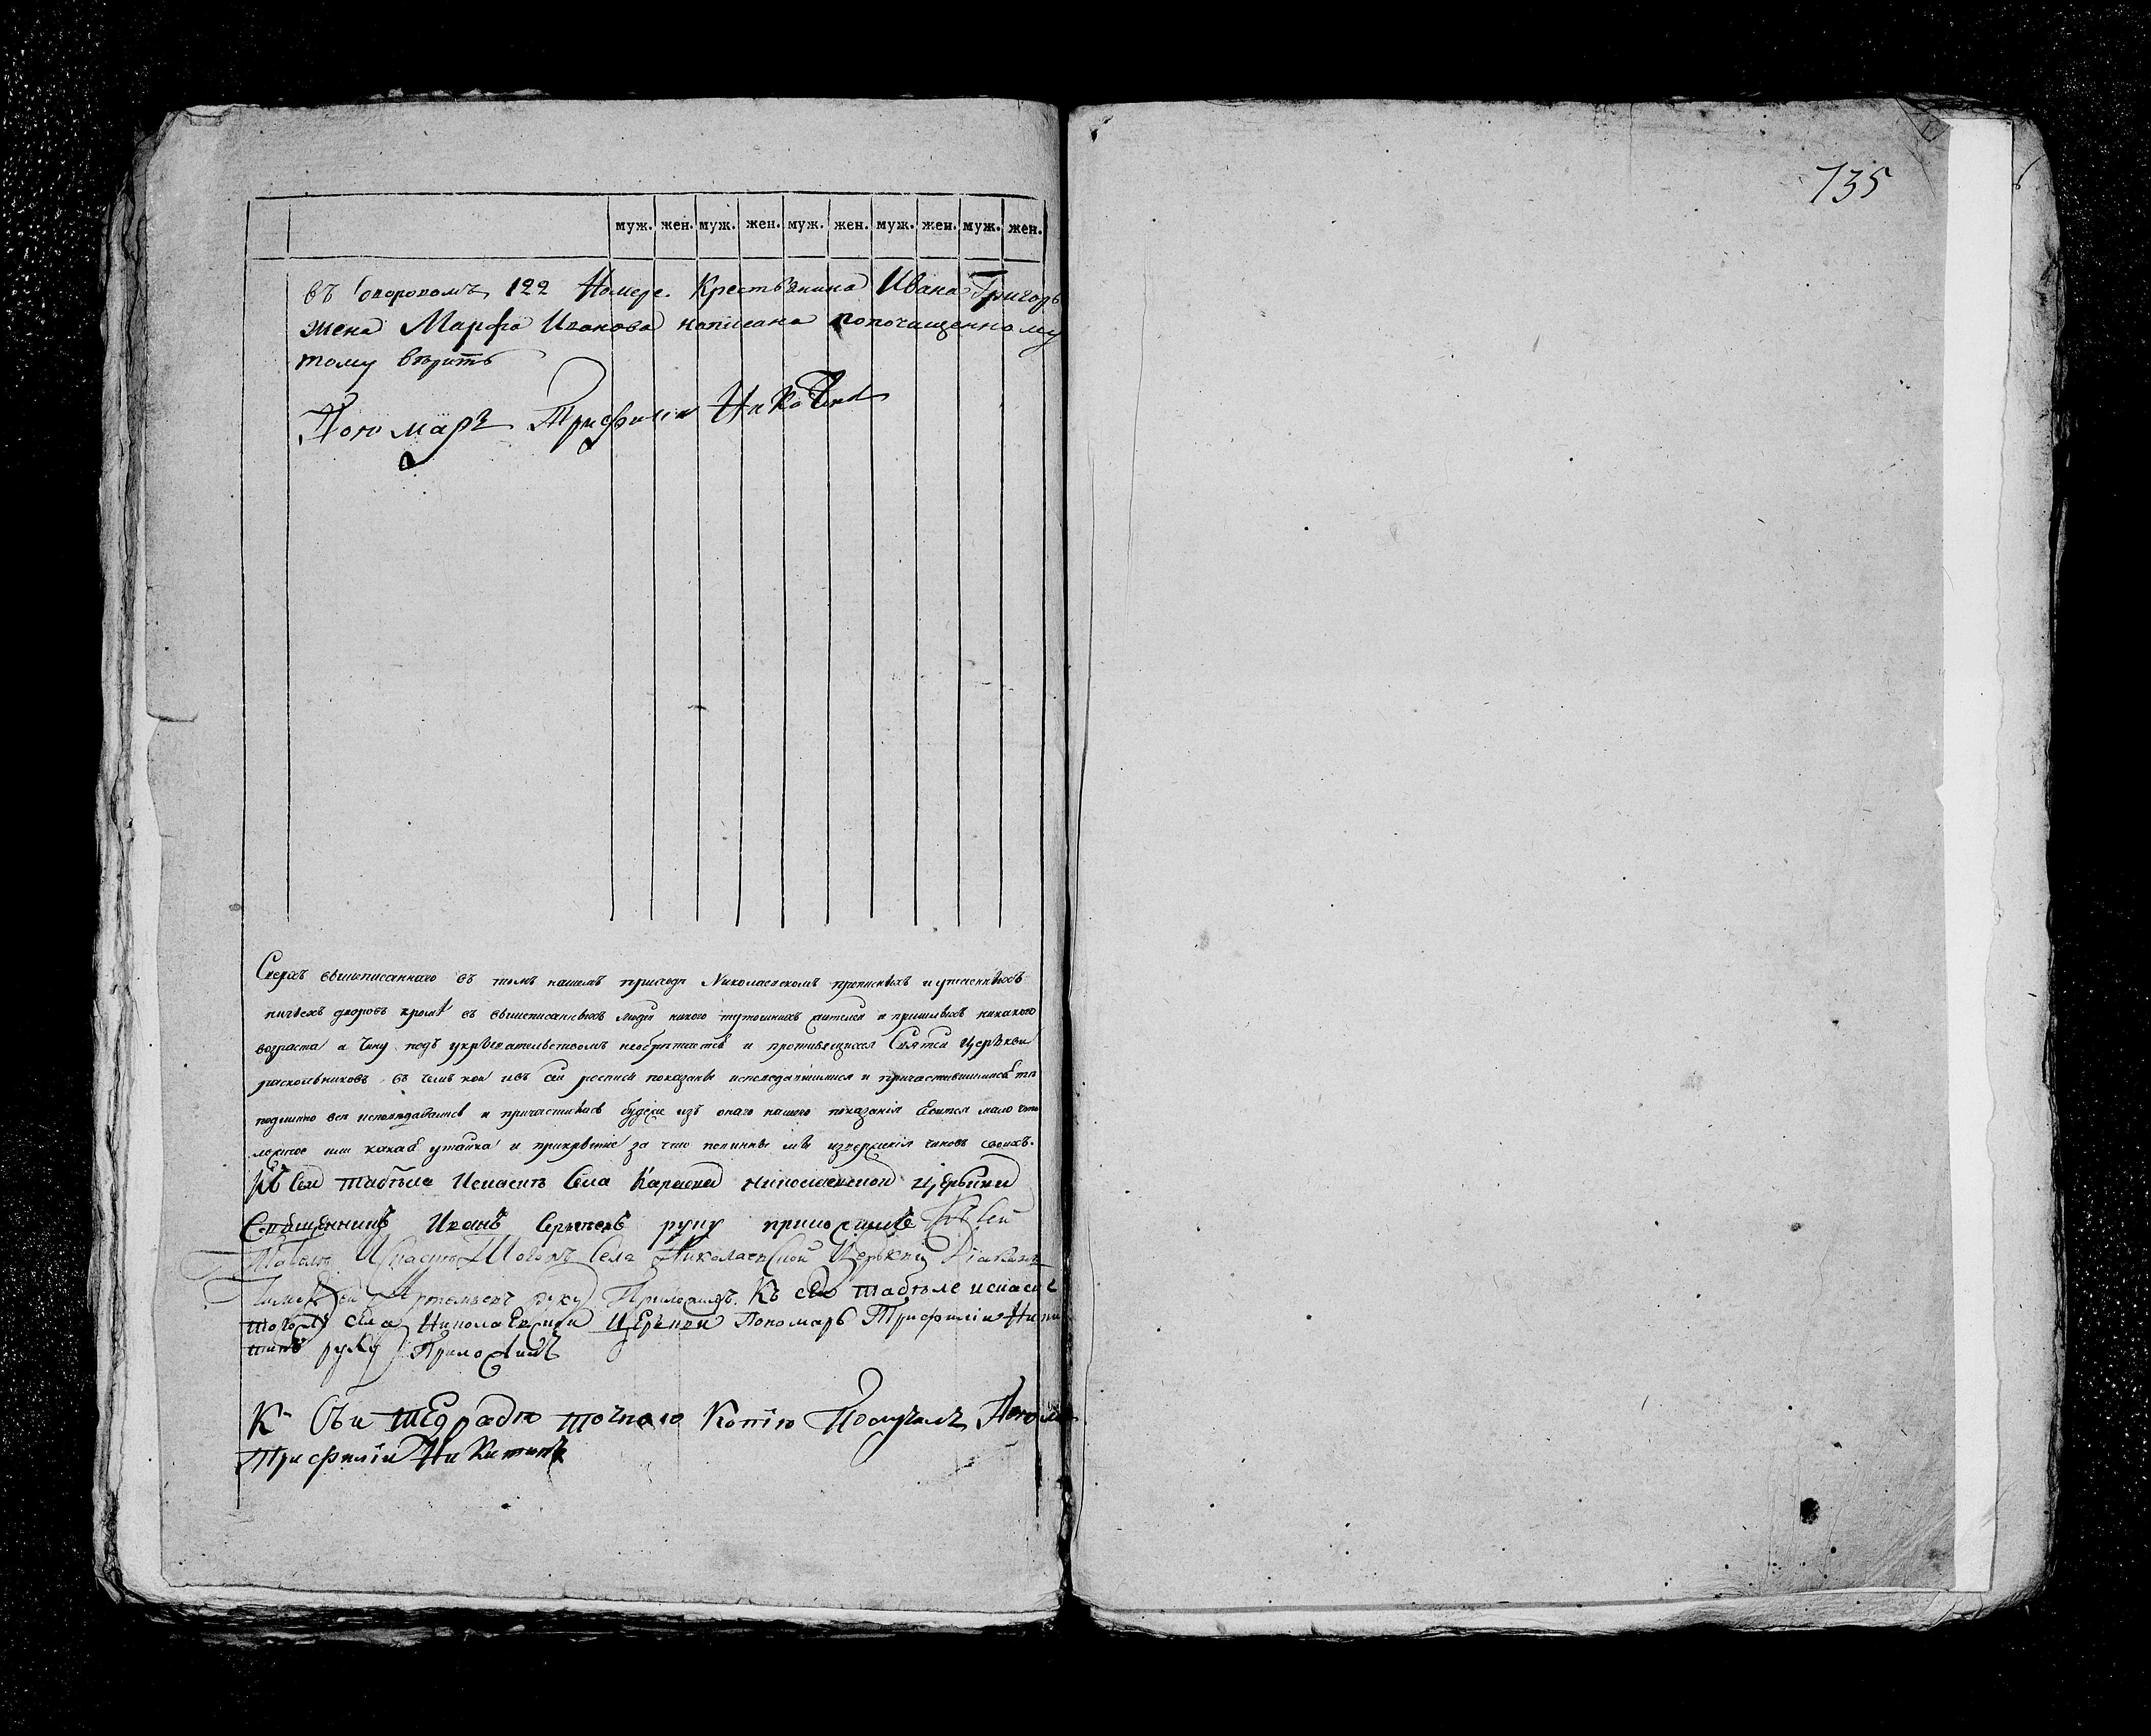 135
муж. жен. муж. жен. муж. жен. муж. жен. муж. жен.
въ дворовомъ 122 Номере. Крестьянина Ивана Григорь
жена Марфа Иванова написана попочищенному
тому верить
Пономарь Трифилiи Никитин
Сверхъ вышеписаннаго въ томъ нашемъ приходѣ Николаевскомъ прописныхъ и утаенныхъ
ничьихъ дворовъ кромѣ въ вышеписанныхъ людей никого тутошнихъ жителей и пришлыхъ никакого
возраста и чину подъ укрывательствомъ необрѣтается и противящихся Святей Церькви
раскольниковъ въ чемъ кои изъ сей росписи показаны исповедавшимися и причастившимися тѣ
подлинно вси исповедовались и причастились будеже изъ онаго нашего показанiя явится мало что
ложное или какая утайка и прикрытие за что повинны мы извержения чиновъ своихъ.
Къ сей табѣле села николаевской церькви
Священникъ Иванъ Сергеевъ руку приложилъ Къ сей
села Николаевской Церькви Дiаконъ
Артемьевъ руку Приложилъ. Къ сей табѣле
тогожъ села Николаевской церькви Пономарь Трифилiи Ники
тинъ руку Приложилъ
К сеи тедрадѣ точною Копiю Получилъ Поном
Трифилiи Никитинъ